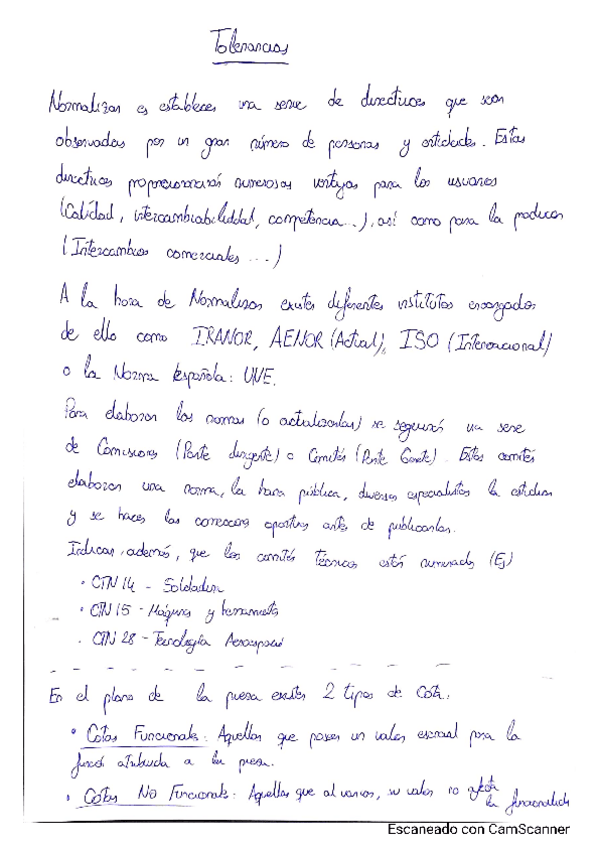 Tolerancias
Normalizar es establecer una serie de directrices que sean
observadas por un gran número de personas y entidades. Estas
directrices proporcionarán numerosas ventajas para los usuarios
(Calidad, intercambiabilidad, competencia...), así como para la
(Intercambios comerciales ...)
A la hora de Normalizar existen diferentes institutos encargados
de ello como IRANOR, AENOR (Actual), ISO (Internacional)
o la Norma Española: UNE.
Para elaborar las normas (o actualizarlas) se seguirá una serie
de Comisiones (Parte dirigente) o Comités (Parte). Estos comités
elaboran una norma, la hacen pública, diversos especialistas la estudian
y se hacen las correcciones oportunas antes de publicarlas.
Indicar, además, que los comités técnicos están numerados (Ej)
• CTN 14 - Soldadura
• CTN 15 - Máquinas y herramientas
• CTN 28 - Tecnología
En el plano de la pieza existen 2 tipos de Cota:
• Cotas Funcionales: Aquellas que poseen un valor esencial para la
función atribuida a la pieza.
• Cotas No Funcionales: Aquellas que al variar, su valor no afecta
la funcionalidad
Escaneado con CamScanner